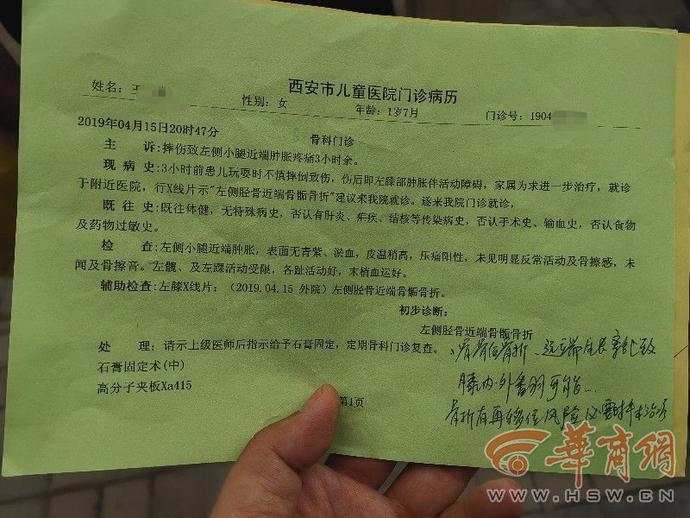 西安市儿童医院门诊病历
姓名：王
性别：女
年龄：1岁7月
门诊号：1904
2019年04月15日20时47分
骨科门诊
主 诉：摔伤致左侧小腿近端肿胀疼痛3小时余。
现 病 史：3小时前患儿玩耍时不慎摔倒致伤，伤后即左膝部肿胀伴活动障碍，家属为求进一步治疗，就诊
于附近医院，行X线片示"左侧胫骨近端骨骺骨折"建议来我院就诊。遂来我院门诊就诊。
既 往 史：既往体健，无特殊病史，否认有肝炎、疟疾、结核等传染病史，否认手术史、输血史，否认食物
及药物过敏史。
检 查：左侧小腿近端肿胀，表面无青紫、淤血，皮温稍高，压痛阳性，未见明显反常活动及骨擦感，未
闻及骨擦音。左髋、及左踝活动受限，各趾活动好，末梢血运好。
辅助检查：左膝X线片：（2019.04.15 外院）左侧胫骨近端骨骺骨折。
初步诊断：
左侧胫骨近端骨骺骨折
处 理：请示上级医师后指示给予石膏固定，定期骨科门诊复查。
石膏固定术(中)
高分子夹板Xa415
第1页
膝内外翻可能
骨折有再移位风险
华商网
WWW.HSW.CN